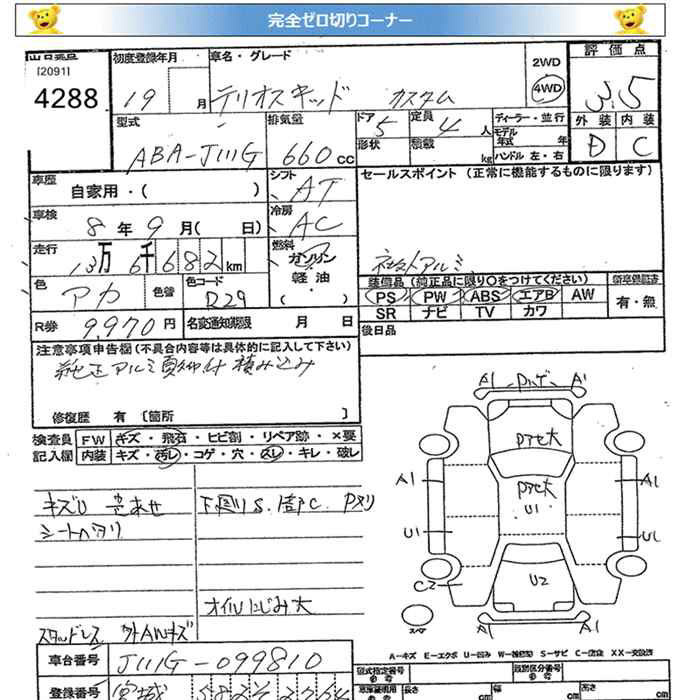 完全ゼロ切りコーナー
[2091]
4288
初度登録年月
19 月
車名・グレード
テリオスキッド カスタム
2WD
4WD
評価点
3.5
外装 内装
D C
型式
ABA-J111G
排気量
660 cc
ドア
5
定員
4 人
形状
積載
kg
ディーラー・並行
モデル年式 年
ハンドル 左・右
車歴
自家用・( )
シフト
AT
セールスポイント (正常に機能するものに限ります)
社外アルミ
車検
8 年 9 月 ( 日)
冷房
AC
走行
13万 6千 6 8 2 km
燃料
ガソリン
軽油
( )
色
アカ
色替
色コード
R29
装備品 (純正品に限り〇をつけてください)
PS PW ABS エアB AW
SR ナビ TV カワ
新車保証書
有・無
R券
9,970 円
名変通知期限 月 日
後日品
注意事項申告欄(不具合内容等は具体的に記入して下さい)
純正アルミ夏タイヤ付積み込み
修復歴 有 [箇所 ]
検査員記入欄
FW キズ・飛石・ヒビ割・リペア跡・×要
内装 キズ・汚レ・コゲ・穴・スレ・キレ・破レ
キズU 色あせ
シートヘタリ
下回りS.
オイルにじみ大
スタッドレス
A1 A1
A1 A1
U1
U1 U1
U2
C2
A1 A1
スペア
A=キズ E=エクボ U=凹み W=補修跡 S=サビ C=腐食 XX=交換済
車台番号
J111G-099810
登録番号
宮城
型式指定番号
類別区分番号
長さ cm
幅 cm
高さ cm